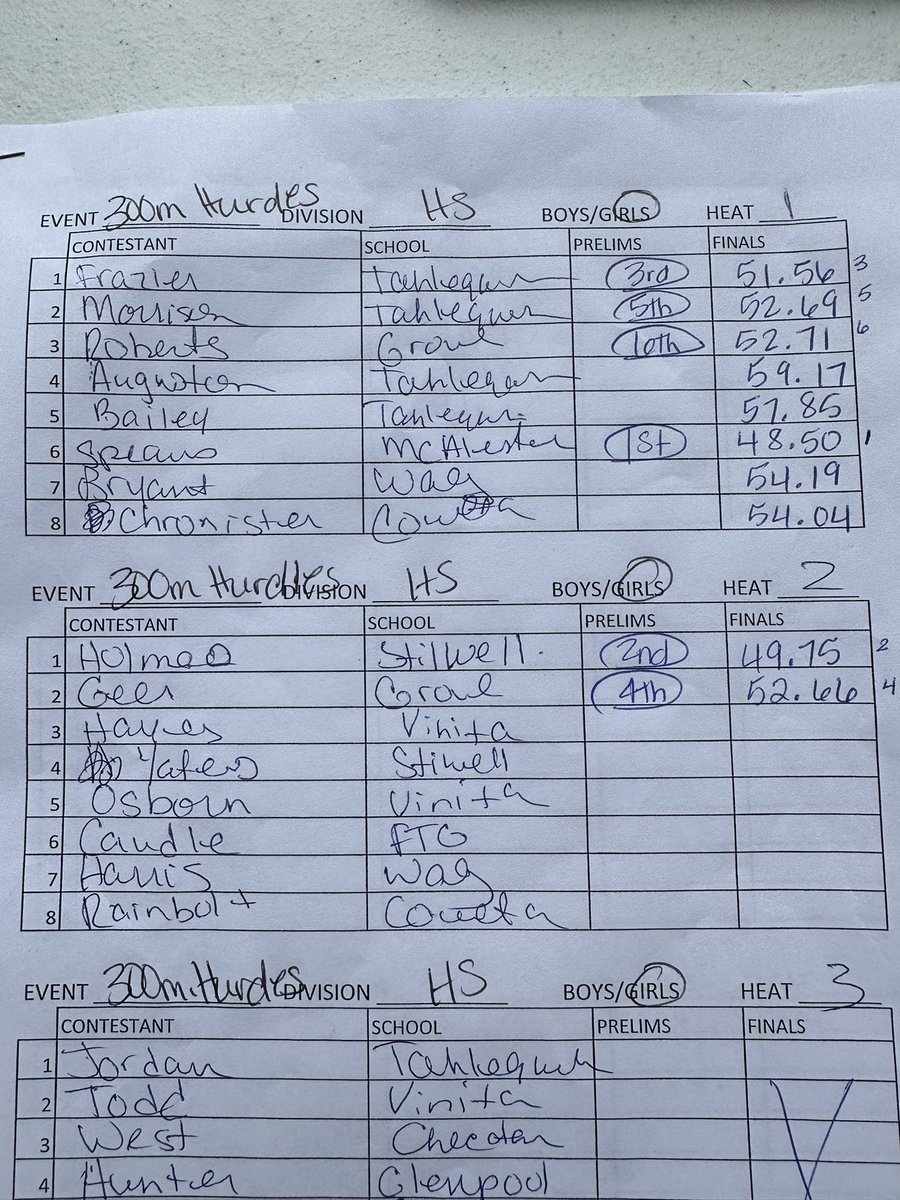 EVENT 300m Hurdes DIVISION HS BOYS/GIRLS HEAT 1
CONTESTANT SCHOOL PRELIMS FINALS
1 Frazier Tahlequah 3rd 51.56 3
2 Morrison Tahlequah 5th 52.69 5
3 Roberts Grove 10th 52.71 6
4 Tahlequah 59.17
5 Bailey Tahlequah 57.85
6 Spears McAlester 1st 48.50 1
7 Bryant Wag 54.19
8 Chronister Coweta 54.04
EVENT 300m Hurdles DIVISION HS BOYS/GIRLS HEAT 2
CONTESTANT SCHOOL PRELIMS FINALS
1 Holmes Stilwell. 2nd 49.75 2
2 Geer Grove 4th 52.66 4
3 Hayes Vinita
4 Yates Stilwell
5 Osborn Vinita
6 Caudle FTG
7 Harris Wag
8 Rainbolt Coweta
EVENT 300m.Hurdes DIVISION HS BOYS/GIRLS HEAT 3
CONTESTANT SCHOOL PRELIMS FINALS
1 Jordan Tahlequah
2 Todd Vinita
3 West Checotah
4 Hunter Glenpool